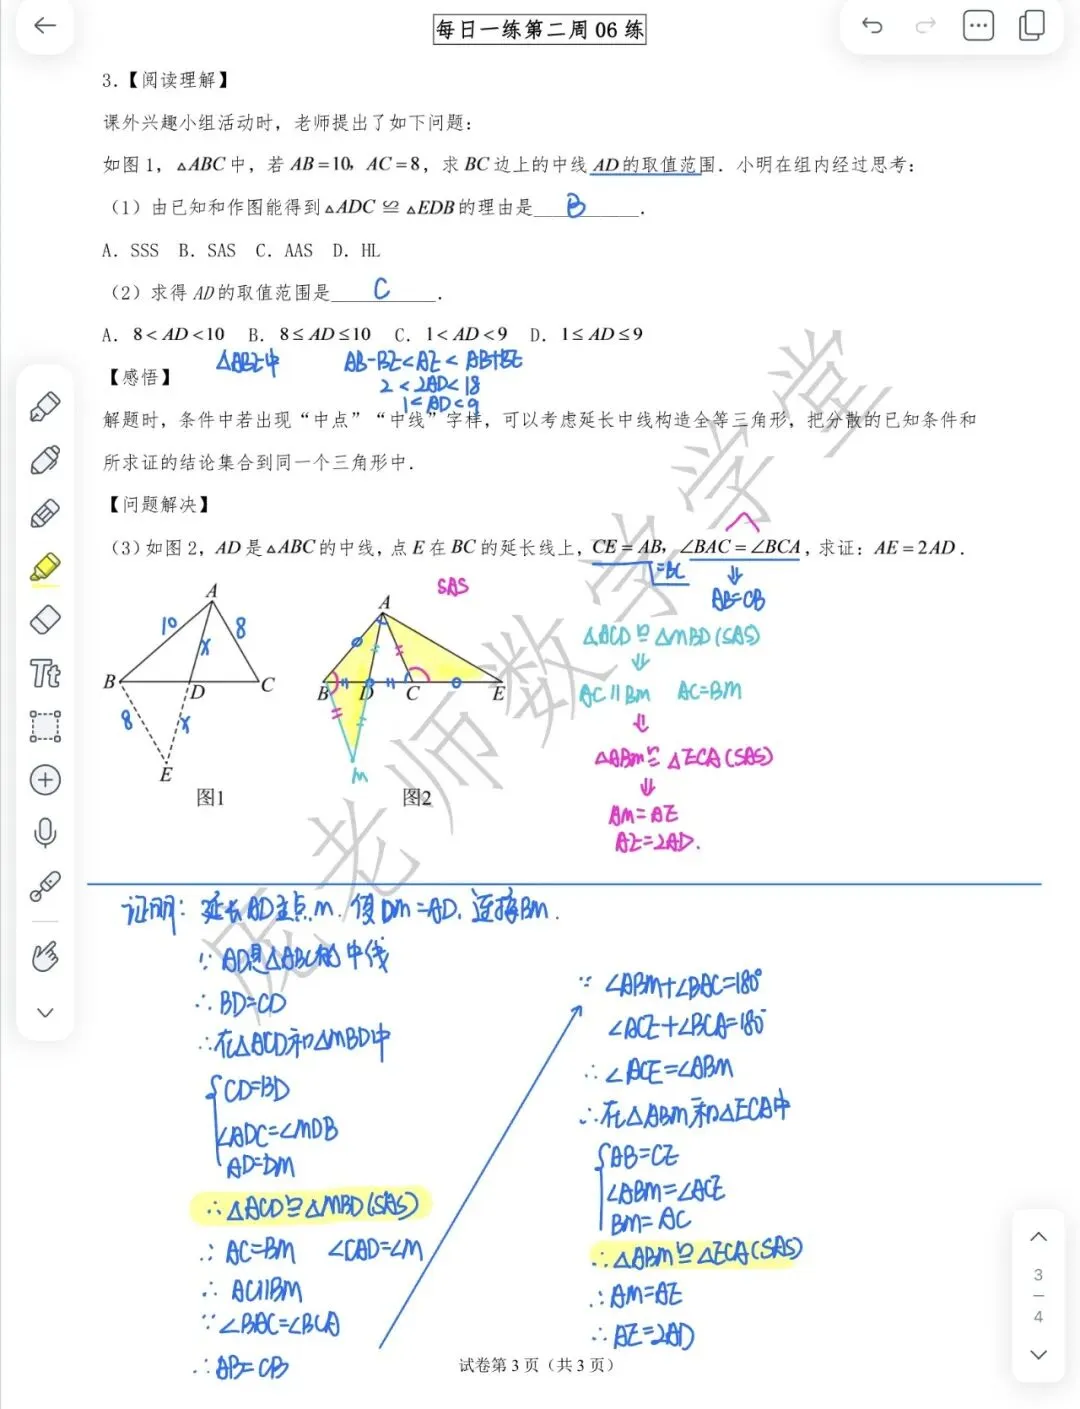 每日一练第二周06练
3.【阅读理解】
课外兴趣小组活动时，老师提出了如下问题：
如图1，△ABC中，若 AB=10，AC=8，求 BC 边上的中线 AD 的取值范围．小明在组内经过思考：
（1）由已知和作图能得到△ADC ≌ △EDB 的理由是 B ．
A．SSS B．SAS C．AAS D．HL
（2）求得 AD 的取值范围是 C ．
A．8<AD<10 B．8≤AD≤10 C．1<AD<9 D．1≤AD≤9
△ABE中 AB-BE<AE<AB+BE
2<2AD<18
1<AD<9
【感悟】
解题时，条件中若出现“中点”“中线”字样，可以考虑延长中线构造全等三角形，把分散的已知条件和
所求证的结论集合到同一个三角形中．
【问题解决】
（3）如图2，AD 是△ABC 的中线，点 E 在 BC 的延长线上，CE=AB，∠BAC=∠BCA，求证：AE=2AD．
=BC
⇓
AB=CB
SAS
A
10
8
x
B
D
C
8
x
E
图1
A
B
D
C
E
M
图2
△ACD≌△MBD(SAS)
⇓
AC∥BM AC=BM
⇓
△ABM≌△ECA(SAS)
⇓
AM=AE
AE=2AD.
证明：延长AD至点M.使DM=AD.连接BM.
∵AD是△ABC的中线
∴BD=CD
∴在△ACD和△MBD中
{CD=BD
∠ADC=∠MDB
AD=DM
∴△ACD≌△MBD(SAS)
∴AC=BM ∠CAD=∠M
∴AC∥BM
∵∠BAC=∠BCA
∴AB=CB
∵∠ABM+∠BAC=180°
∠ACE+∠BCA=180°
∴∠ACE=∠ABM
∴在△ABM和△ECA中
{AB=CE
∠ABM=∠ACE
BM=AC
∴△ABM≌△ECA(SAS)
∴AM=AE
∴AE=2AD
试卷第3页（共3页）
庞老师数学学堂
Tt
3
4